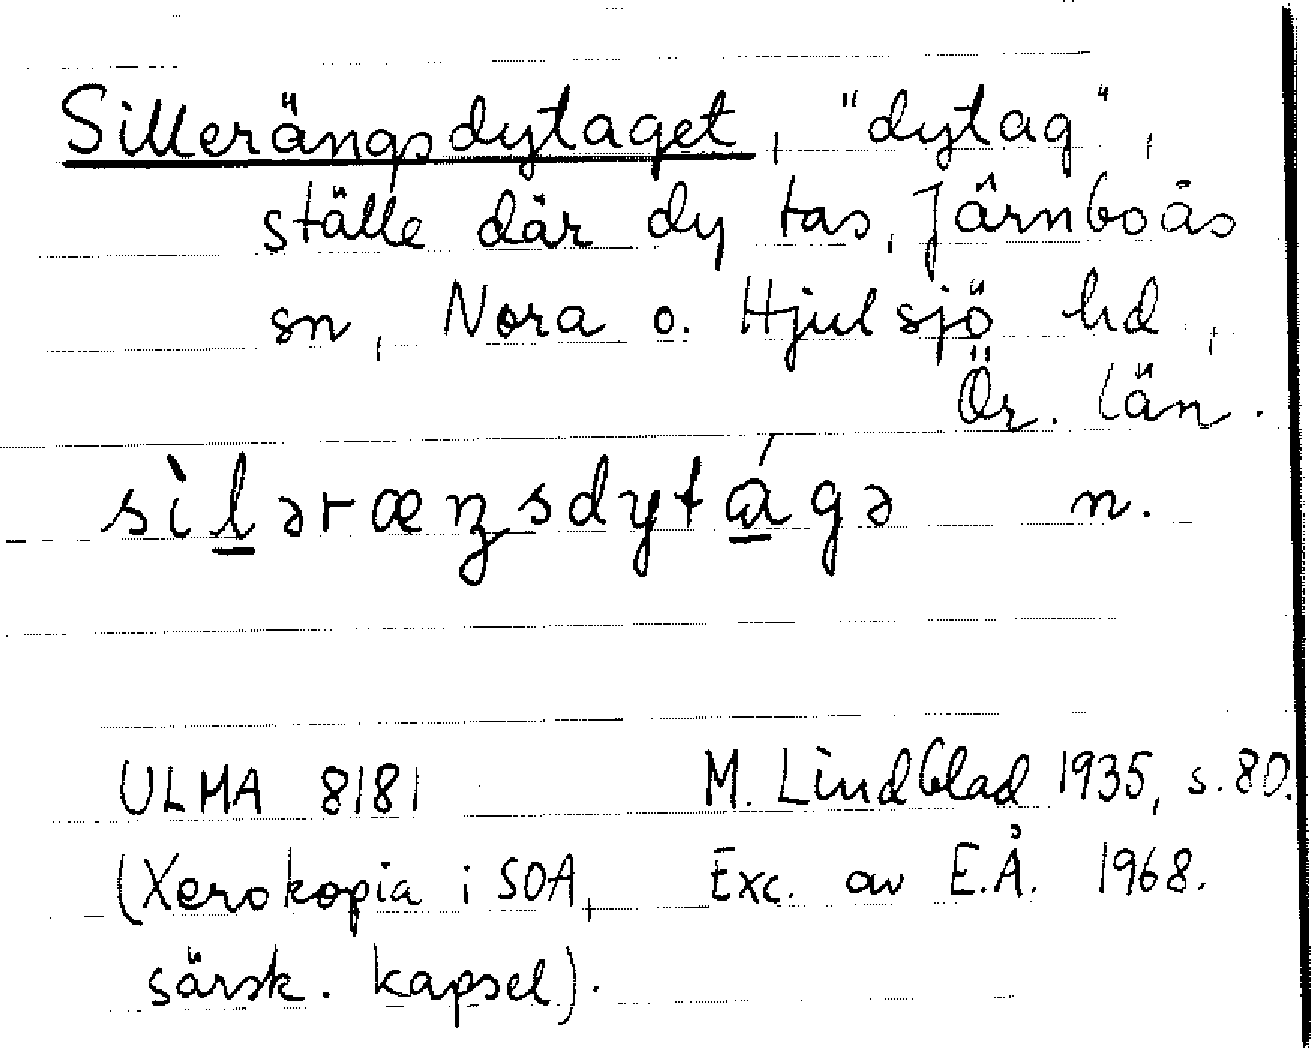 Sillerängsdytaget, "dytag",
ställe där dy tas, Järnboås
sn, Nora o. Hjulsjö hd,
Ör. län.
sìləræŋsdytágə n.
ULMA 8181 M. Lindblad 1935, s. 80.
(Xerokopia i SOA, Exc. av E.Å. 1968.
särsk. kapsel).